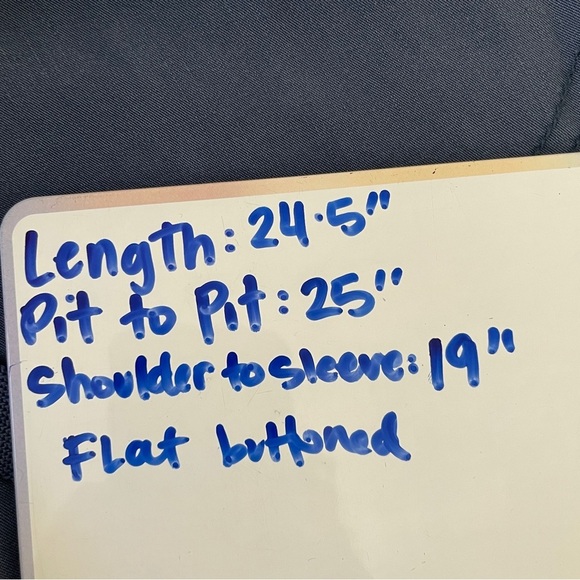 Length: 24.5"
Pit to Pit: 25"
Shoulder to sleeve: 19"
Flat buttoned